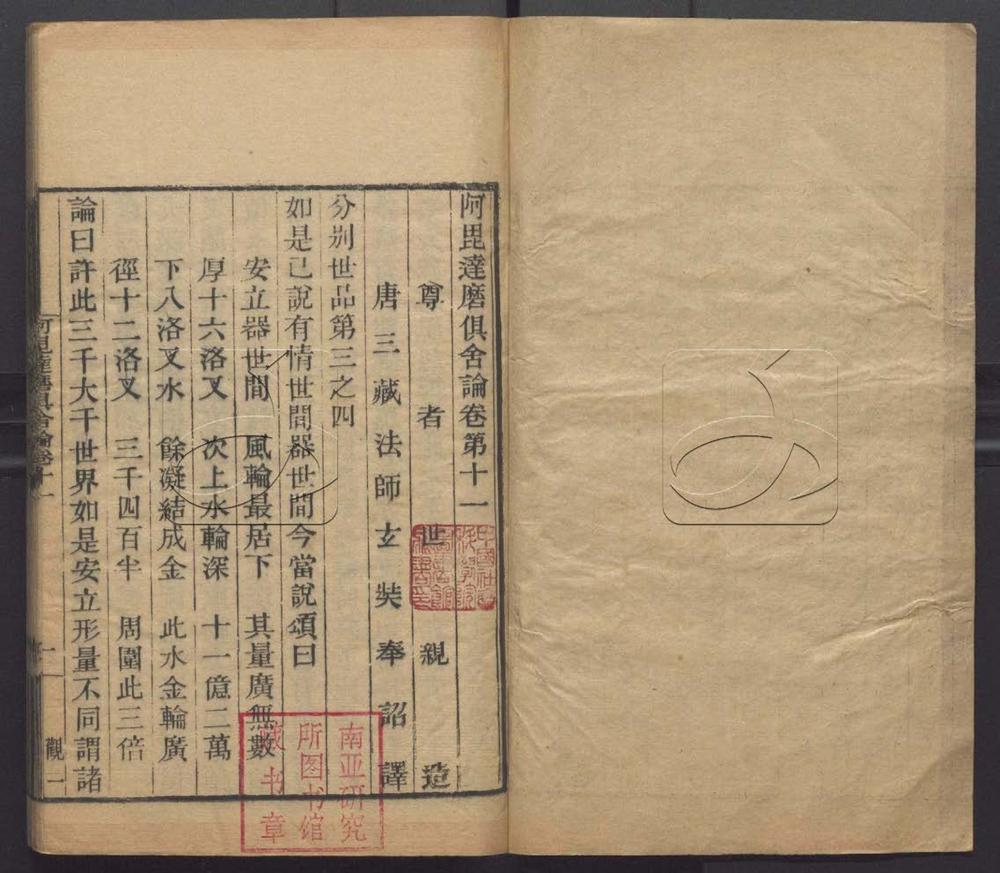 阿毘達磨俱舍論卷第十一
尊者世親造
唐三藏法師玄奘奉詔譯
分別世品第三之四
如是已說有情世間器世間今當說頌曰
安立器世間 風輪最居下 其量廣無數
厚十六洛叉 次上水輪深 十一億二萬
下八洛叉水 餘凝結成金 此水金輪廣
徑十二洛叉 三千四百半 周圍此三倍
論曰許此三千大千世界如是安立形量不同謂諸
阿毘達磨俱舍論卷十一
一
觀一
南亚研究
所图书馆
藏书章